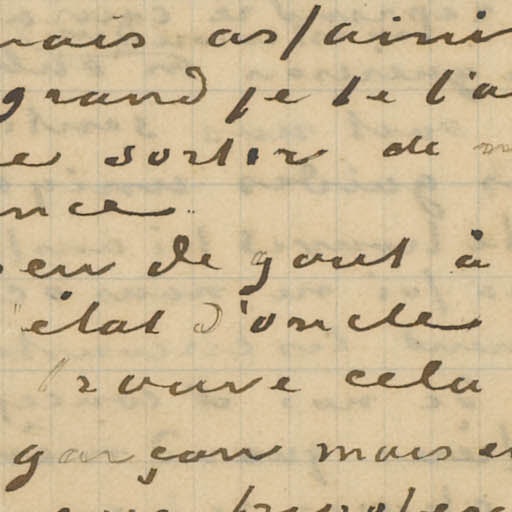 mais assaini
grand je te l'a
e sortir de
nce
en de gout à
état d'oncle
trouve cela
garçon mais e